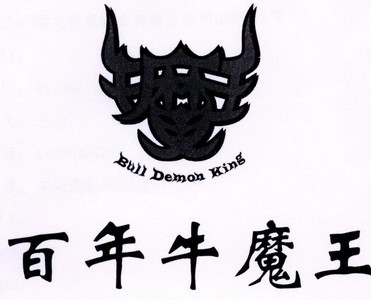 Bull Demon King
百年牛魔王